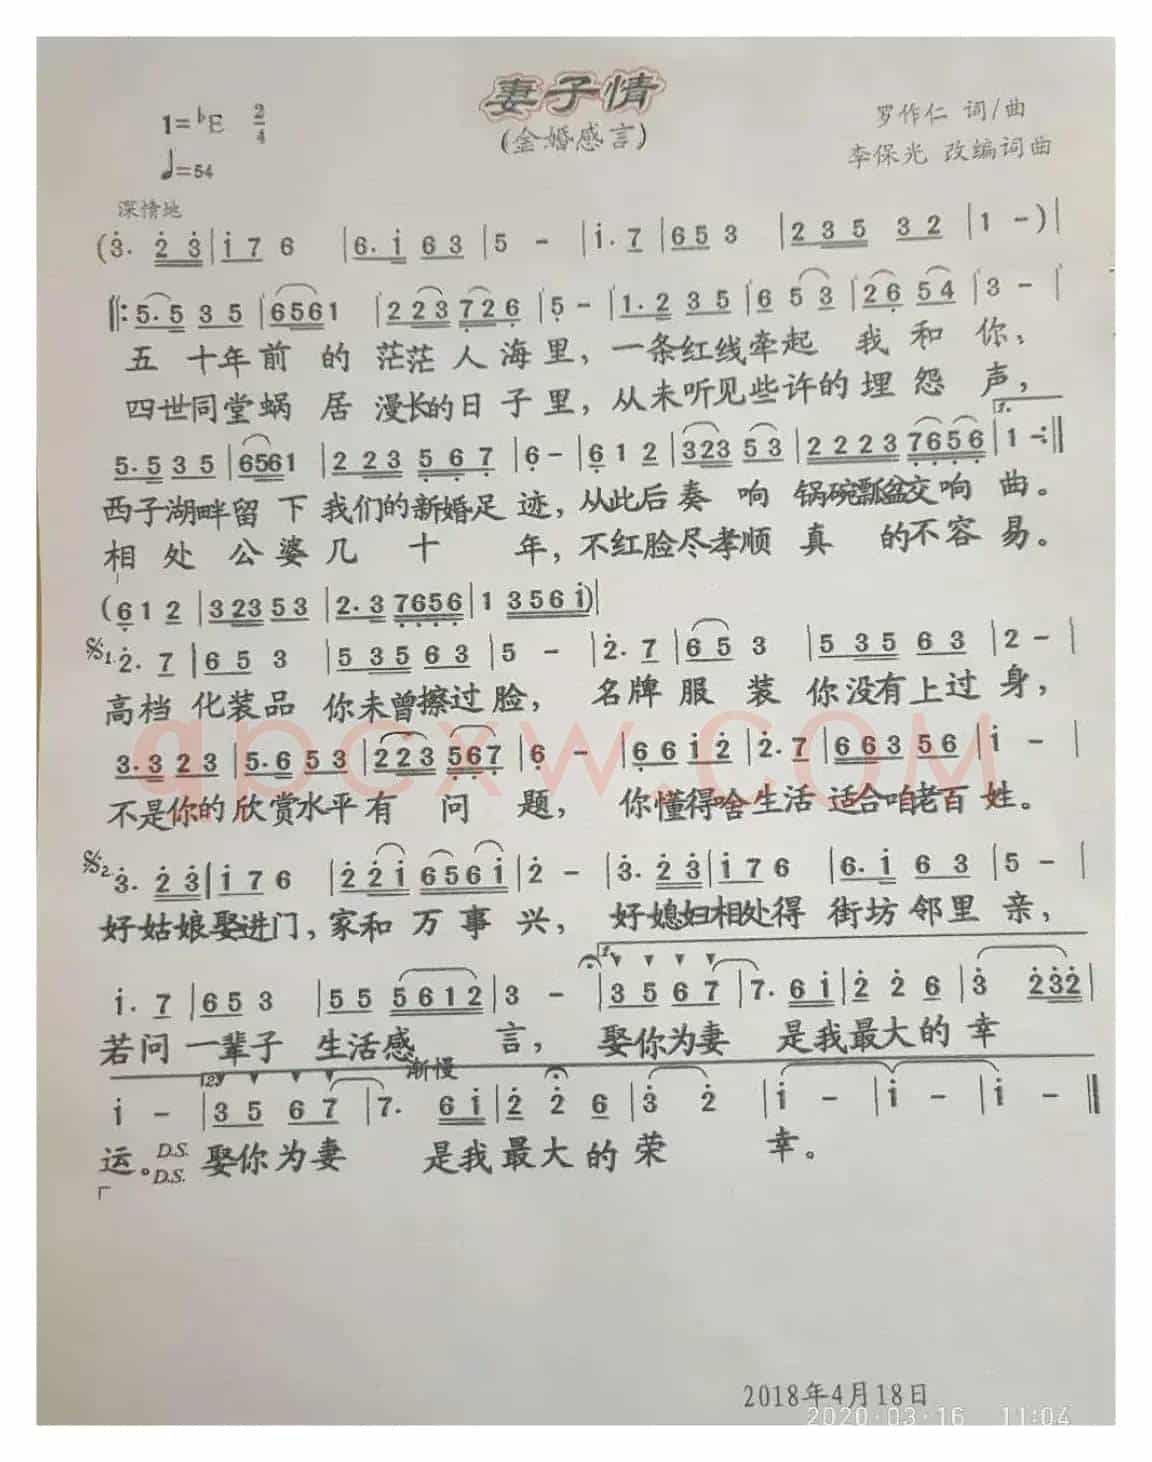 妻子情
(金婚感言)
1=♭E 2/4
♩=54
罗作仁 词/曲
李保光 改编词曲
深情地
(3̇. 2̇ 3̇ | 1̇ 7 6 | 6. 1̇ 6 3 | 5 - | 1̇. 7 | 6 5 3 | 2 3 5 3 2 | 1 - ) |
‖: 5. 5 3 5 | 6 5 6 1 | 2 2 3 7̣ 2 6̣ | 5̣ - | 1. 2 3 5 | 6 5 3 | 2 6̣ 5 4 | 3 - |
五 十年 前 的 茫茫 人 海 里, 一条红线牵起 我 和 你;
四世同堂蜗 居 漫长的日 子 里, 从未听见些许的 埋 怨 声,
1.
5. 5 3 5 | 6 5 6 1 | 2 2 3 5̣ 6̣ 7̣ | 6̣ - | 6̣ 1 2 | 3 2 3 5 3 | 2 2 2 3 7̣ 6̣ 5̣ 6̣ | 1 - :‖
西子湖畔留 下 我们的新婚足 迹, 从此后 奏 响 锅碗瓢盆交 响 曲。
相 处 公 婆 几 十 年, 不红脸尽孝顺 真 的不 容 易。
(6̣ 1 2 | 3 2 3 5 3 | 2. 3 7̣ 6̣ 5̣ 6̣ | 1 3 5 6 1̇) |
𝄋1. 2̇. 7 | 6 5 3 | 5 3 5 6 3 | 5 - | 2̇. 7 | 6 5 3 | 5 3 5 6 3 | 2 - |
高档 化装品 你未曾擦过 脸, 名牌 服 装 你没有上过 身,
3. 3 2 3 | 5. 6 5 3 | 2 2 3 5̣ 6̣ 7̣ | 6̣ - | 6̣ 6 1̇ 2̇ | 2̇. 7 | 6 6 3 5 6 | 1̇ - |
不是你的 欣赏水平有 问 题, 你懂得啥生活 适合咱老百 姓。
𝄋2. 3̇. 2̇ 3̇ | 1̇ 7 6 | 2̇ 2̇ 1̇ 6 5 6 1̇ | 2̇ - | 3̇. 2̇ 3̇ | 1̇ 7 6 | 6. 1̇ 6 3 | 5 - |
好姑娘娶进门, 家和 万 事 兴, 好媳妇相处得 街坊 邻里 亲,
1.
1̇. 7 | 6 5 3 | 5 5 5 6 1 2 | 3 - | 3 5 6 7 | 7. 6 1̇ | 2̇ 2̇ 6 | 3̇ 2̇ 3̇ 2̇ |
若问 一辈子 生活感 言, 娶你为妻 是我最大的 幸
2. 渐慢
1̇ - | 3 5 6 7 | 7. 6 1̇ | 2̇ 2̇ 6 | 3̇ 2̇ | 1̇ - | 1̇ - | 1̇ - ‖
运。D.S. 娶你为妻 是我 最大 的 荣 幸。
D.S.
2018年4月18日
2020·03·16 11:04
qpcxw.com